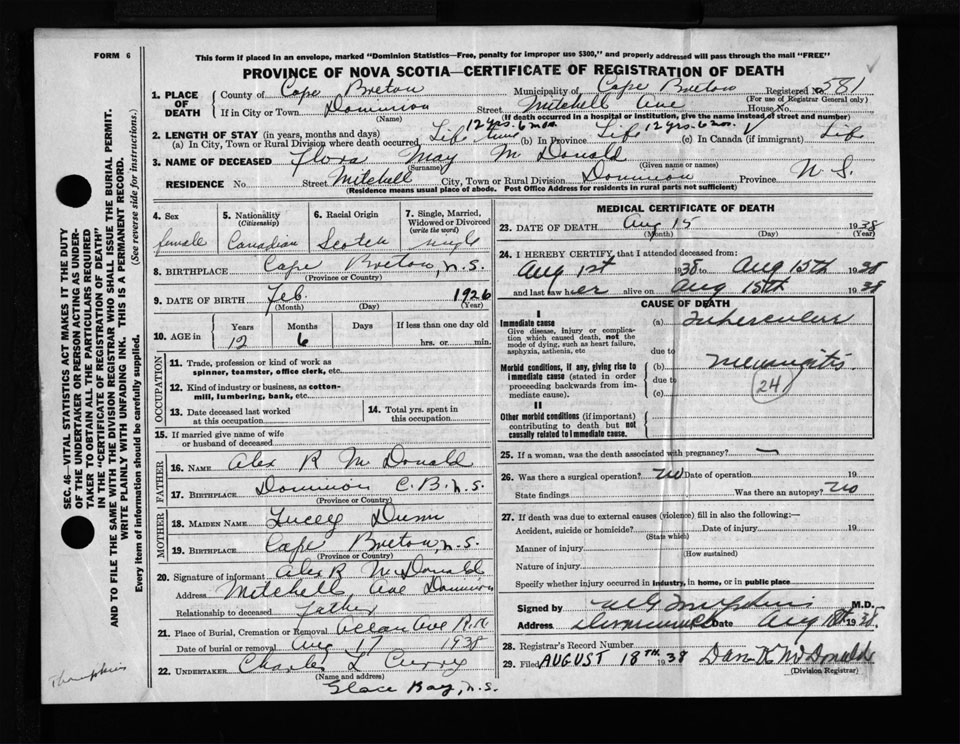 FORM 6
This form if placed in an envelope, marked "Dominion Statistics—Free, penalty for improper use $300," and properly addressed will pass through the mail "FREE"
PROVINCE OF NOVA SCOTIA—CERTIFICATE OF REGISTRATION OF DEATH
1. PLACE OF DEATH
County of Cape Breton Municipality of Cape Breton Registered No. 581
(For use of Registrar General only)
If in City or Town Dominion Street Mitchell Ave House No.
(Name) (If death occurred in a hospital or institution, give the name instead of street and number)
2. LENGTH OF STAY (in years, months and days) 12 yrs. 6 mos. 12 yrs. 6 mos.
(a) In City, Town or Rural Division where death occurred Life time (b) In Province Life (c) In Canada (if immigrant) Life
3. NAME OF DECEASED Flora May McDonald
(Surname) (Given name or names)
RESIDENCE No. Street Mitchell City, Town or Rural Division Dominion Province N.S.
(Residence means usual place of abode. Post Office Address for residents in rural parts not sufficient)
4. Sex
female
5. Nationality
(Citizenship)
Canadian
6. Racial Origin
Scotch
7. Single, Married, Widowed or Divorced
(write the word)
single
8. BIRTHPLACE Cape Breton, N.S.
(Province or Country)
9. DATE OF BIRTH Feb. 1926
(Month) (Day) (Year)
10. AGE in Years Months Days If less than one day old
12 6 hrs. or min.
OCCUPATION
11. Trade, profession or kind of work as spinner, teamster, office clerk, etc.
12. Kind of industry or business, as cotton-mill, lumbering, bank, etc.
13. Date deceased last worked at this occupation
14. Total yrs. spent in this occupation
15. If married give name of wife or husband of deceased
FATHER
16. NAME Alex R McDonald
17. BIRTHPLACE Dominion C.B. N.S.
(Province or Country)
MOTHER
18. MAIDEN NAME Lucey Dunn
19. BIRTHPLACE Cape Breton, N.S.
(Province or Country)
20. Signature of informant Alex R McDonald
Address Mitchell Ave Dominion
Relationship to deceased father
21. Place of Burial, Cremation or Removal Ocean Ave
Date of burial or removal Aug 1938
22. UNDERTAKER Charles L Curry
(Name and address)
Glace Bay, N.S.
MEDICAL CERTIFICATE OF DEATH
23. DATE OF DEATH Aug 15 1938
(Month) (Day) (Year)
24. I HEREBY CERTIFY, that I attended deceased from:
Aug 1st 1938 to Aug 15th 1938
and last saw her alive on Aug 15th 1938
CAUSE OF DEATH
I
Immediate cause
Give disease, injury or complication which caused death, not the mode of dying, such as heart failure, asphyxia, asthenia, etc
(a) Tubercular
due to
Morbid conditions, if any, giving rise to immediate cause (stated in order proceeding backwards from immediate cause).
(b) meningitis
due to
(c)
24
II
Other morbid conditions (if important) contributing to death but not causally related to immediate cause.
25. If a woman, was the death associated with pregnancy?
26. Was there a surgical operation? no Date of operation 19
State findings Was there an autopsy? no
27. If death was due to external causes (violence) fill in also the following:—
Accident, suicide or homicide? Date of injury 19
(State which)
Manner of injury
(How sustained)
Nature of injury
Specify whether injury occurred in industry, in home, or in public place
Signed by M.D.
Address Date Aug 18th 1938.
28. Registrar's Record Number
29. Filed AUGUST 18TH 1938 Dan K McDonald
(Division Registrar)
SEC. 46—VITAL STATISTICS ACT MAKES IT THE DUTY
OF THE UNDERTAKER OR PERSON ACTING AS UNDER-
TAKER TO OBTAIN ALL THE PARTICULARS REQUIRED
IN THE "CERTIFICATE OF REGISTRATION OF DEATH"
AND TO FILE THE SAME WITH THE DIVISION REGISTRAR WHO SHALL ISSUE THE BURIAL PERMIT.
WRITE PLAINLY WITH UNFADING INK. THIS IS A PERMANENT RECORD.
Every item of information should be carefully supplied. (See reverse side for instructions.)
Thompkins